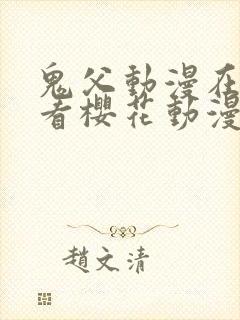 鬼父動漫在
看櫻花動漫
趙文清